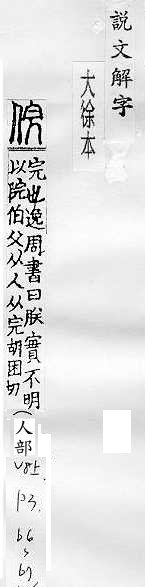 説文解字
大徐本
俒
完也逸周書曰朕實不明
以俒伯父从人从完胡困切
(人部)
p3.
66
67